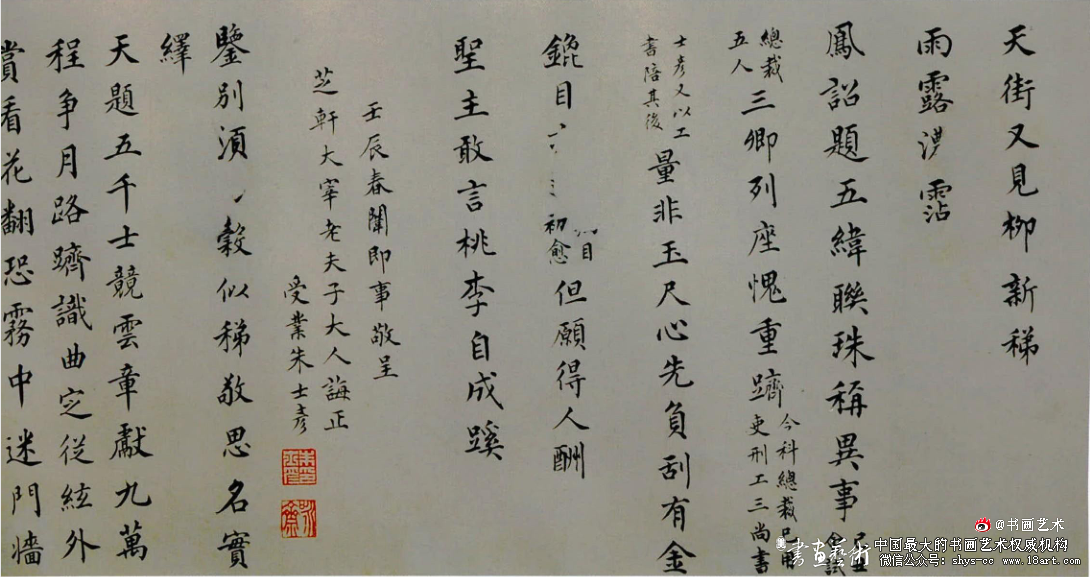 天街又見柳新稊
雨露霑
鳳詔題五緯聯珠稱異事
總裁
五人三卿列座愧重躋今科總裁
吏刑工三尚書
士彥又以工
書陪其後量非玉尺心先負刮有金
錕目
初愈但願得人酬
聖主敢言桃李自成蹊
壬辰春闈即事敬呈
芝軒大宰老夫子大人誨正
受業朱士彥
鑒別須穀似稊敬思名實
繹
天題五千士競雲章獻九萬
程爭月路躋識曲定從絃外
賞看花翻恐霧中迷門牆
@书画艺术
書畫藝術
中国最大的书画艺术权威机构
微信公众号:shys-cc www.18art.com